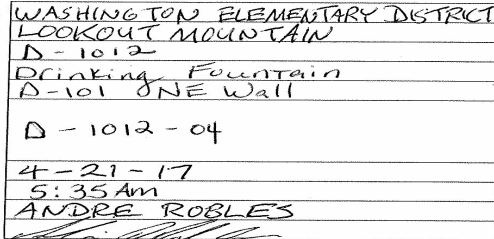 WASHINGTON ELEMENTARY DISTRICT
LOOKOUT MOUNTAIN
D-1012
Drinking Fountain
D-101 NE Wall
D-1012-04
4-21-17
5:35 Am
ANDRE ROBLES